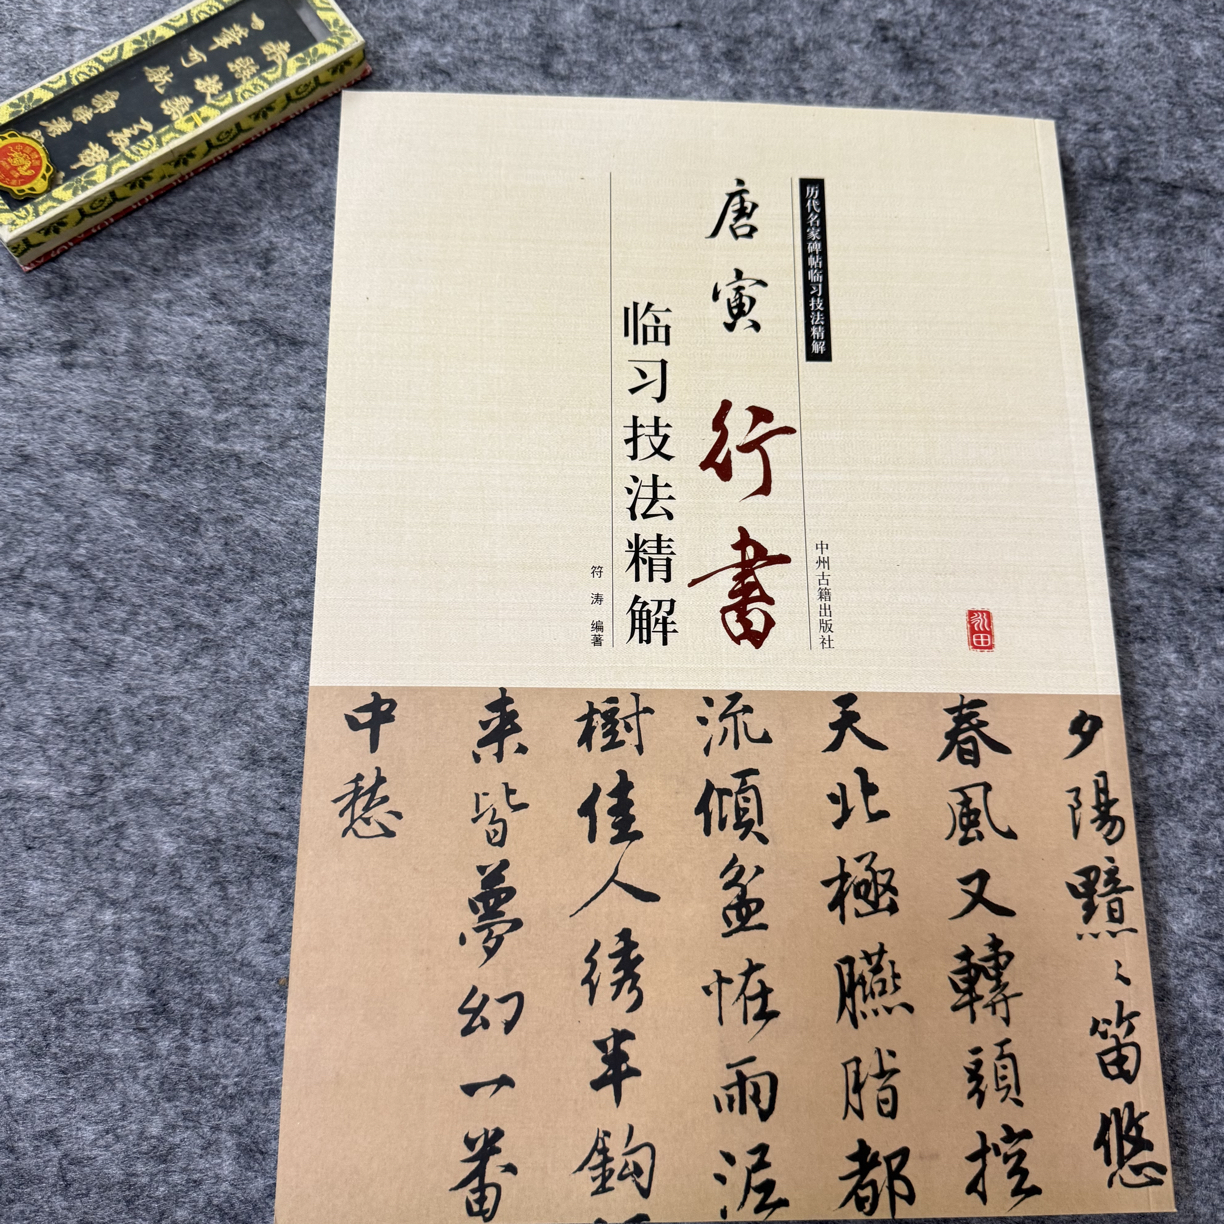 历代名家碑帖临习技法精解
中州古籍出版社
唐寅行書
临习技法精解
符涛 编著
夕陽黯〻笛悠
春風又轉頭控
天北極臙脂都
流傾盆恠雨泥
樹佳人绣半鈎
来皆夢幻一番
中愁